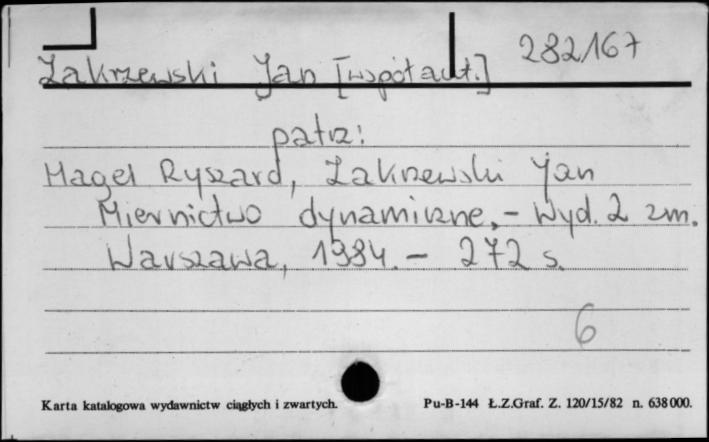 282167
Zakrzewski Jan [współaut.]
patrz:
Hagel Ryszard, Zakrzewski Jan
Miernictwo dynamiczne. - Wyd. 2 zm.
Warszawa, 1984. - 272 s.
6
Karta katalogowa wydawnictw ciągłych i zwartych. Pu-B-144 Ł.Z.Graf. Z. 120/15/82 n. 638000.